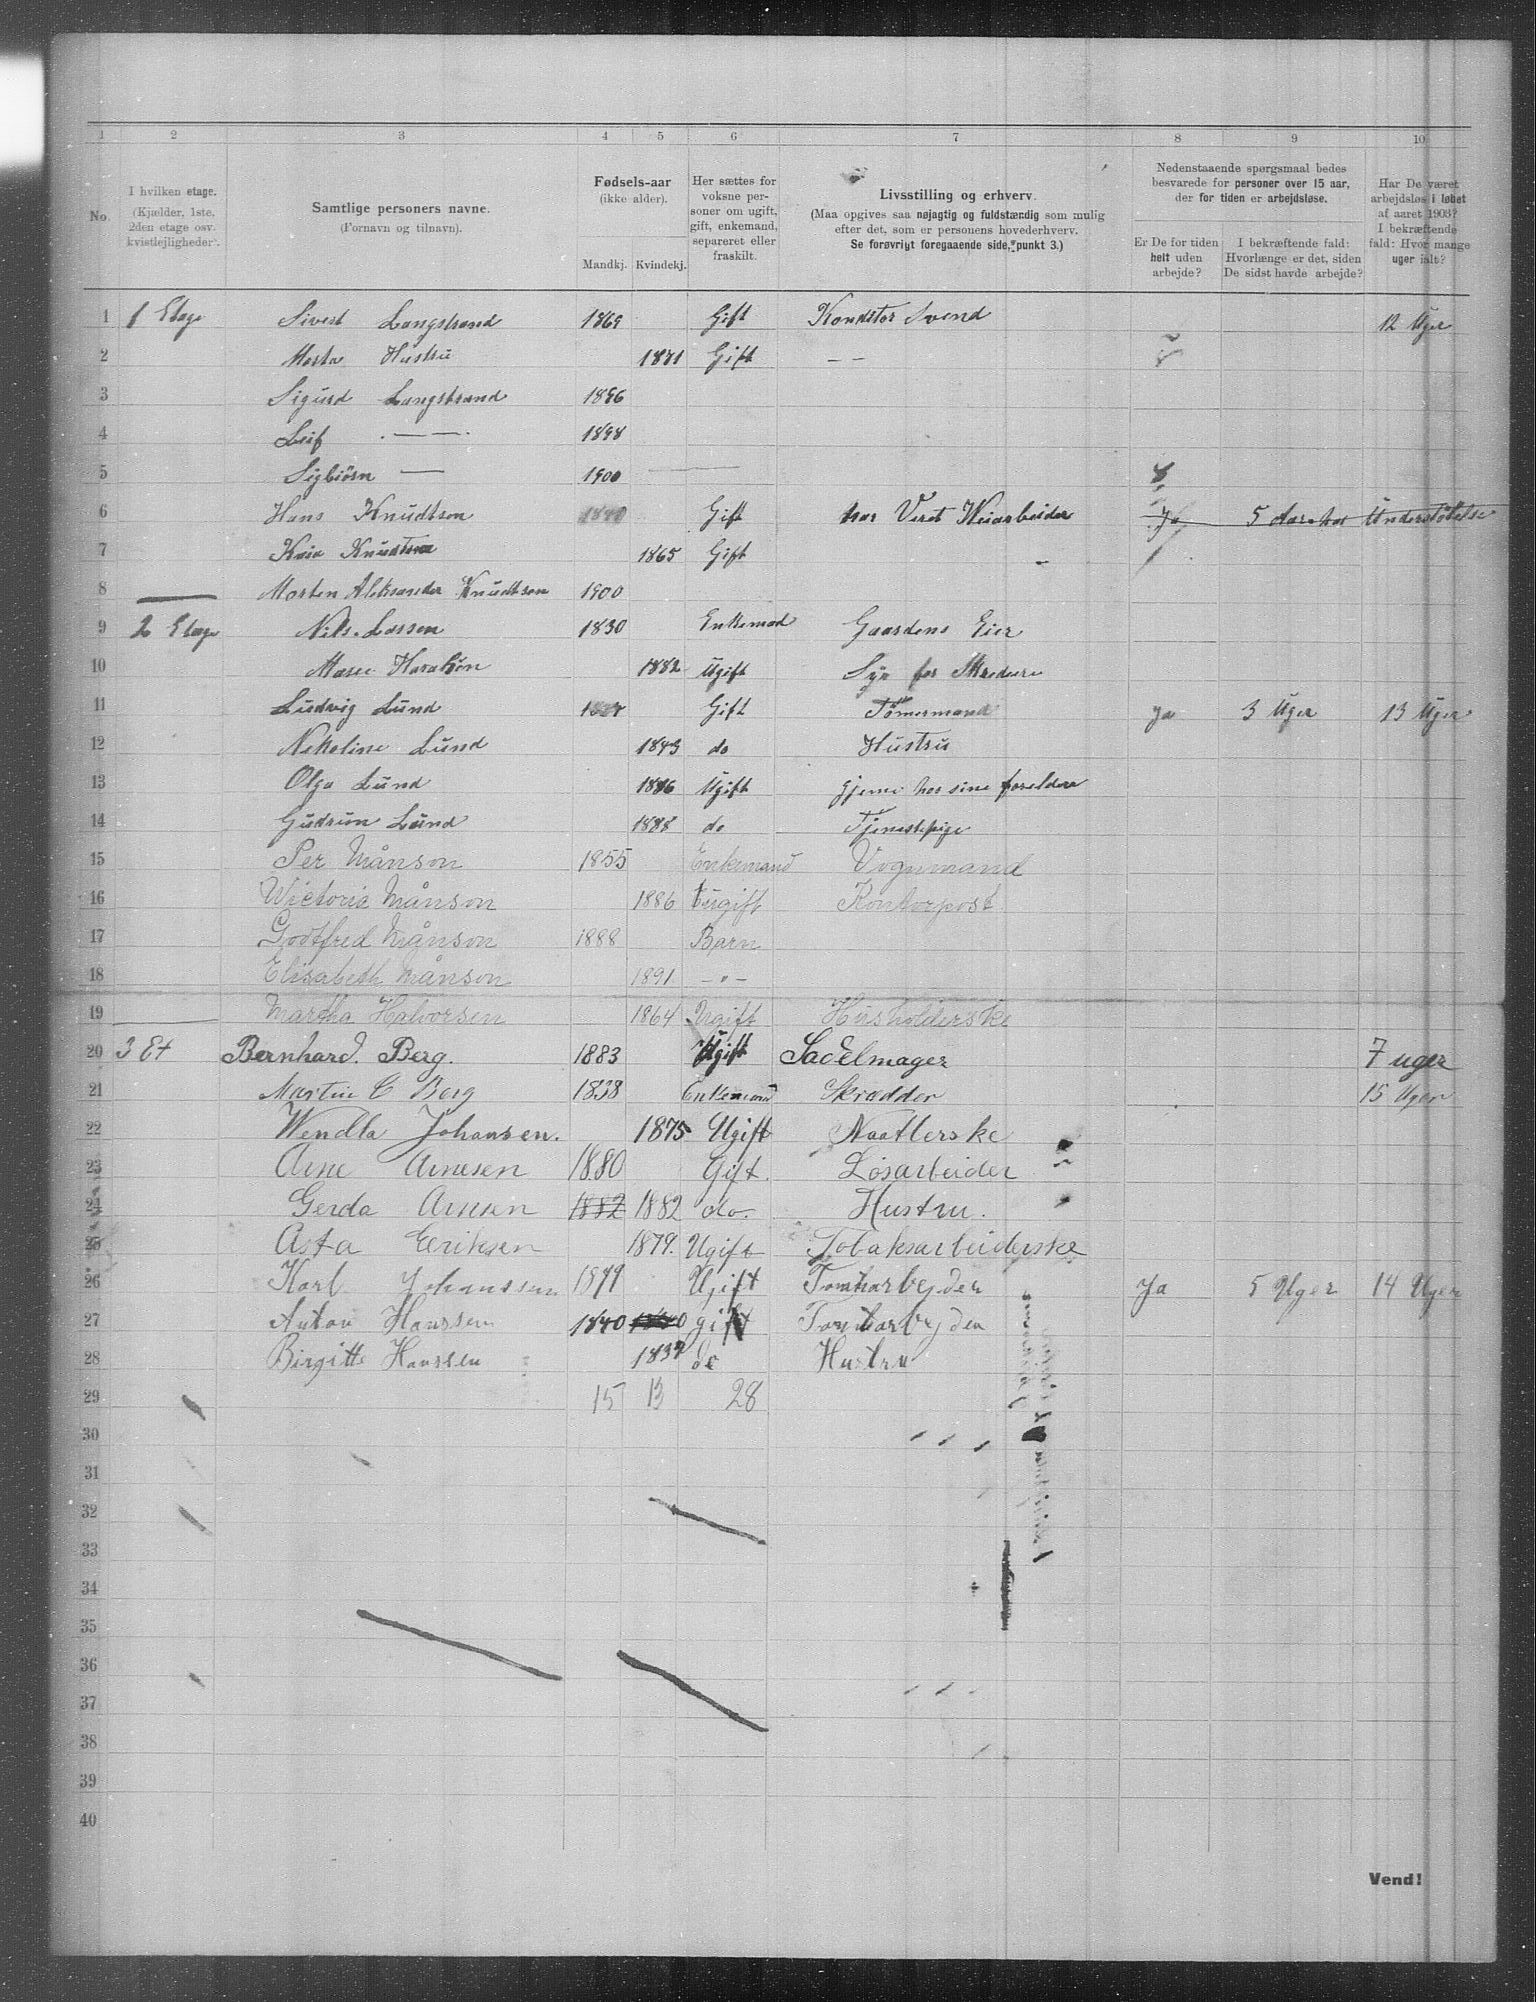 1 2 3 4 5 6 7 8 9 10
No.
I hvilken etage.
(Kjælder, 1ste,
2den etage osv.
kvistlejligheder).
Samtlige personers navne.
(Fornavn og tilnavn).
Fødsels-aar
(ikke alder).
Mandkj. Kvindekj.
Her sættes for
voksne per-
soner om ugift,
gift, enkemand,
separeret eller
fraskilt.
Livsstilling og erhverv.
(Maa opgives saa nøjagtig og fuldstændig som mulig
efter det, som er personens hovederhverv.
Se forøvrigt foregaaende side, punkt 3.)
Nedenstaaende spørgsmaal bedes
besvarede for personer over 15 aar,
der for tiden er arbejdsløse.
Er De for tiden
helt uden
arbejde?
I bekræftende fald:
Hvorlænge er det, siden
De sidst havde arbejde?
Har De været
arbejdsløs i løbet
af aaret 1903?
I bekræftende
fald: Hvor mange
uger ialt?
1 1 Etage Sivert Langstrand 1869 Gift Konditor Svend 12 Uger
2 Marta Hustru 1871 Gift — —
3 Sigurd Langstrand 1896
4 Leif — 1898
5 Sigbiörn — 1900
6 Hans Knudtson 1840 Gift har Veret Weiarbeider Ja 5 Aar Understøtelse
7 Kaia Knudtson 1865 Gift
8 Morten Aleksander Knudtson 1900
9 2 Etage Nils Lassen 1830 Enkemad Gaardens Eier
10 1882 Ugift Syr for
11 Ludvig Lund Gift Tömermand Ja 3 Uger 13 Uger
12 Nekoline Lund 1843 do Hustru
13 Olga Lund 1886 Ugift hjeme hos sine foreldre
14 Gudrun Lund 1888 do Tjenestepige
15 Per Månson 1855 Enkemand Vognmand
16 Wictoria Månson 1886 Eugift Kontorpost
17 Godtfred Månson 1888 Barn
18 Elisabeth Månson 1891 -"-
19 Martha Halvorsen 1864 Ugift Husholderske
20 3 Et Bernhard. Berg. 1883 Ugift Sadelmager 7 uger
21 Martin C Berg 1838 Enkemand Skrædder 15 Uger
22 Wendla Johansen. 1875 Ugift Naatlerske
23 Arne Arnesen 1880 Gift. Løsarbeider
24 Gerda Arnesen 1882 1882 do. Hustru.
25 Asta Eriksen 1879. Ugift Tobaksarbeiderske
26 Karl Johanssen 1879 Ugift Tomtarbejder Ja 5 Uger 14 Uger
27 Anton Hanssen 1840 1840 gift Tomtarbejder
28 Birgitte Hanssen 1837 do Hustru
29 15 13 28
30
31
32
33
34
35
36
37
38
39
40
Vend!